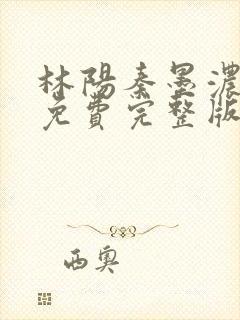 林陽秦墨濃
免費完整版
西奧